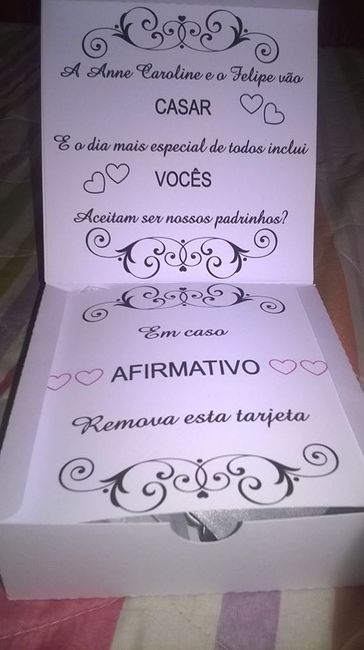 A Anne Caroline e o Felipe vão
CASAR
E o dia mais especial de todos inclui
VOCÊS
Aceitam ser nossos padrinhos?
Em caso
AFIRMATIVO
Remova esta tarjeta